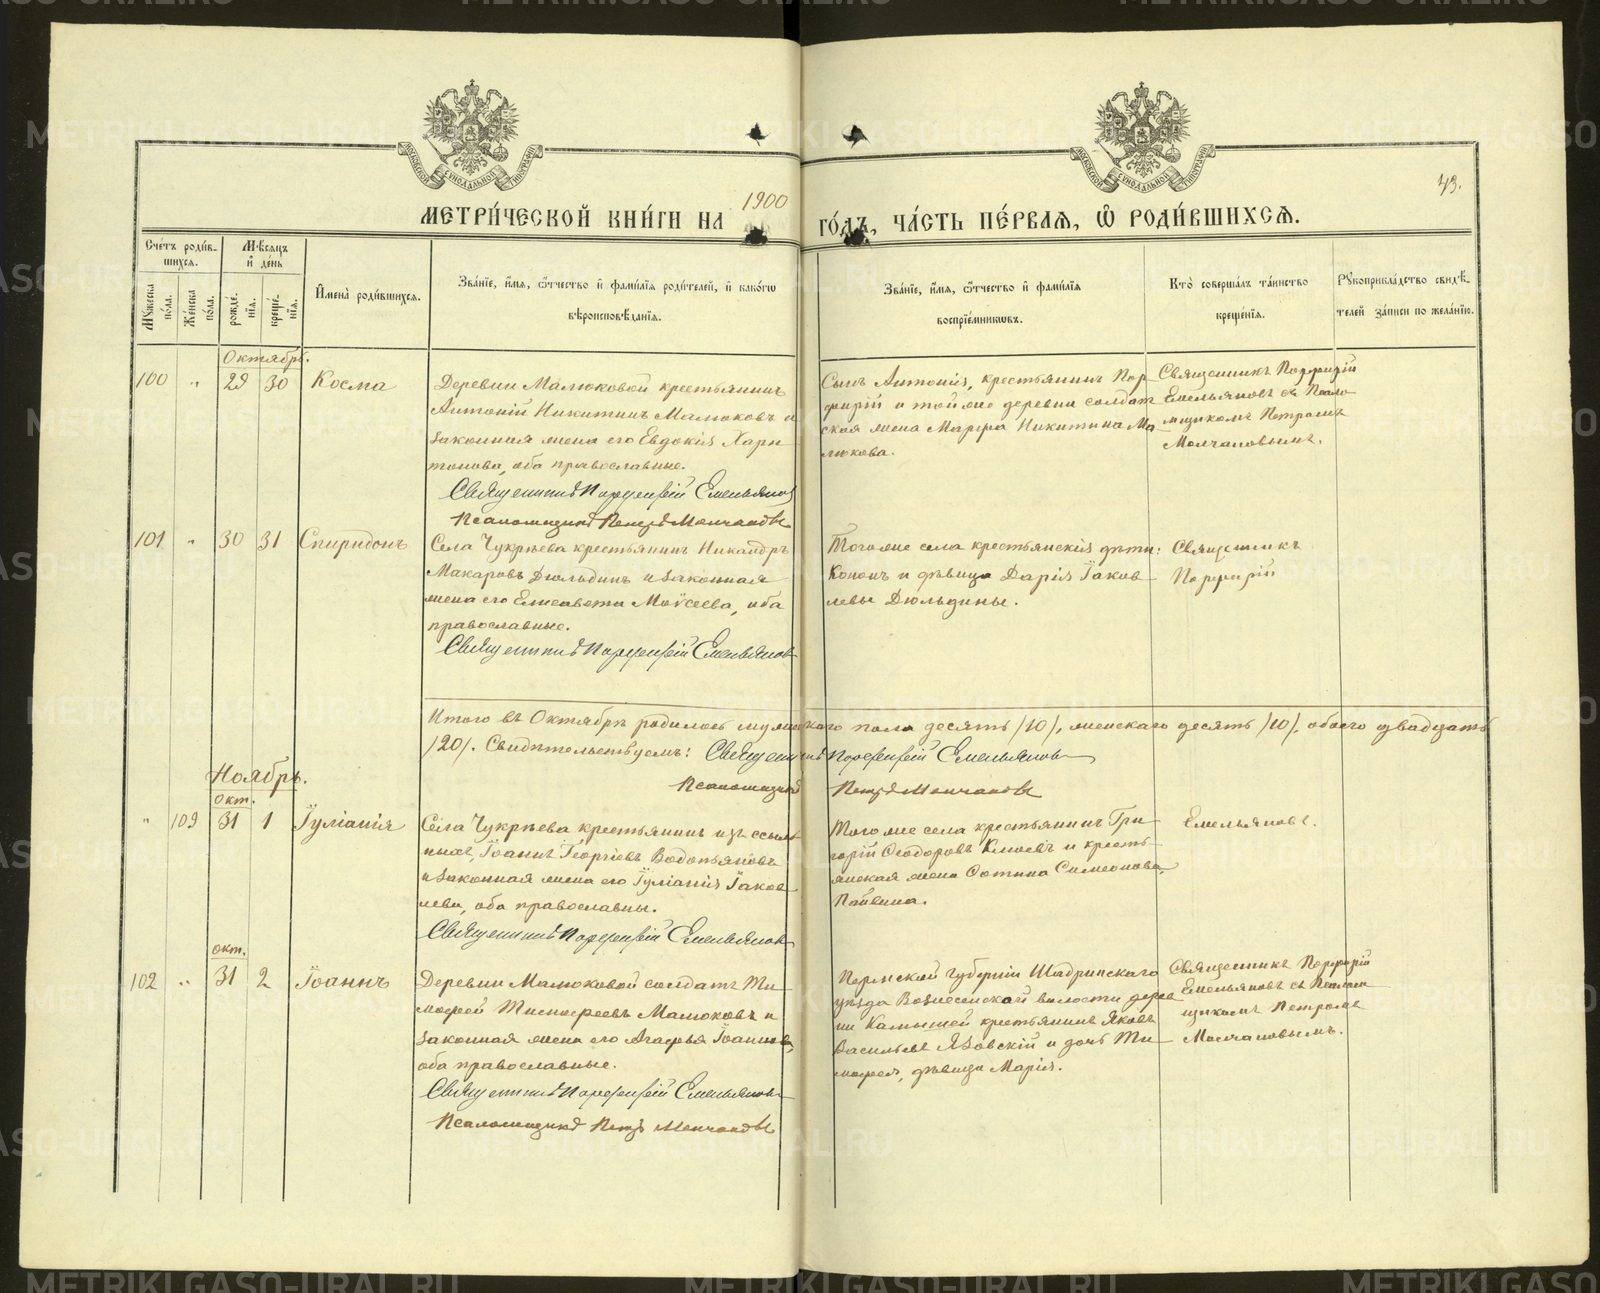 METRIKI.GASO-URAL.RU
МОСКОВСКОЙ СѴНОДАЛЬНОЙ ТИПОГРАФІИ
МОСКОВСКОЙ СѴНОДАЛЬНОЙ ТИПОГРАФІИ
73.
1900
МЕТРИ́ЧЕСКОЙ КНИ́ГИ НА
ГО́ДЪ, ЧА́СТЬ ПЕ́РВАѦ, Ѽ РОДИ́ВШИХСѦ.
Сче́тъ роди́в-
шихсѧ.
Мѣсѧцъ
и҆ де́нь
Мꙋ́жеска по́ла.
Же́нска по́ла.
рожде́нїѧ.
креще́нїѧ.
И҆мена̀ роди́вшихсѧ.
Зва́нїе, и҆́мѧ, ѻ҆́тчество и҆ фами́лїѧ роди́телей, и҆ како́гѡ
вѣроисповѣ́данїѧ.
Зва́нїе, и҆́мѧ, ѻ҆́тчество и҆ фами́лїѧ
воспрїе́мникѡвъ.
Кто̀ соверша́лъ та́инство
креще́нїѧ.
Рꙋкоприкла́дство свидѣ́-
телей за́писи по жела́нїю.
Октябрь.
100 " 29 30 Косма
Деревни Малюковой крестьянинъ
Антоній Никитинъ Малюковъ и
законная жена его Евдокія Хари-
тонова, оба православные.
Священникъ Порфирій Емельяновъ
Псаломщикъ Петръ Молчановъ
Сынъ Антонія, крестьянинъ Пор-
фирій и той же деревни солдат-
ская жена Марфа Никитина Ма-
люкова.
Священникъ Порфирій
Емельяновъ съ Псало-
мщикомъ Петромъ
Молчановымъ.
101 " 30 31 Спиридонъ
Села Чукрѣева крестьянинъ Никандръ
Макаровъ Дюльдинъ и законная
жена его Елисавета Моѵсеева, оба
православные.
Священникъ Порфирій Емельяновъ
Того же села крестьянскія дѣти:
Кононъ и дѣвица Дарія Іаков-
левы Дюльдины.
Священникъ
Порфирій
Итого въ Октябрѣ родилось мужескаго пола десять /10/, женскаго десять /10/, обоего двадцать
/20/. Свидѣтельствуемъ: Священникъ Порфирій Емельяновъ
Псаломщикъ Петръ Молчановъ
Ноябрь.
окт.
" 109 31 1 Іуліанія
Села Чукрѣева крестьянинъ изъ ссыль-
ныхъ, Іоаннъ Георгіевъ
и законная жена его Іуліанія Іаков-
лева, оба православны.
Священникъ Порфирій Емельяновъ
Того же села крестьянинъ Гри-
горій Ѳеодоровъ и кресть-
янская жена Симеонова
Емельяновъ.
окт.
102 " 31 2 Іоаннъ
Деревни Малюковой солдатъ Ти-
моѳей Тимоѳеевъ Малюковъ и
законная жена его Агаѳья Іоаннова,
оба православные.
Священникъ Порфирій Емельяновъ
Псаломщикъ Петръ Молчановъ
Пермской губерніи Шадринскаго
уѣзда Вознесенской волости дерев-
ни Камышей крестьянинъ Яковъ
Васильевъ Язовскій и дочь Ти-
моѳея, дѣвица Марія.
Священникъ Порфирій
Емельяновъ съ Псалом-
щикомъ Петромъ
Молчановымъ.